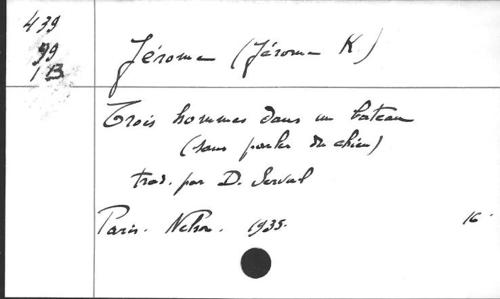 439
99
1 B
Jérome (Jérome K)
Trois hommes dans un bateau
(sans parler du chien)
trad. par D. Serval
Paris. Nelson. 1935. 16